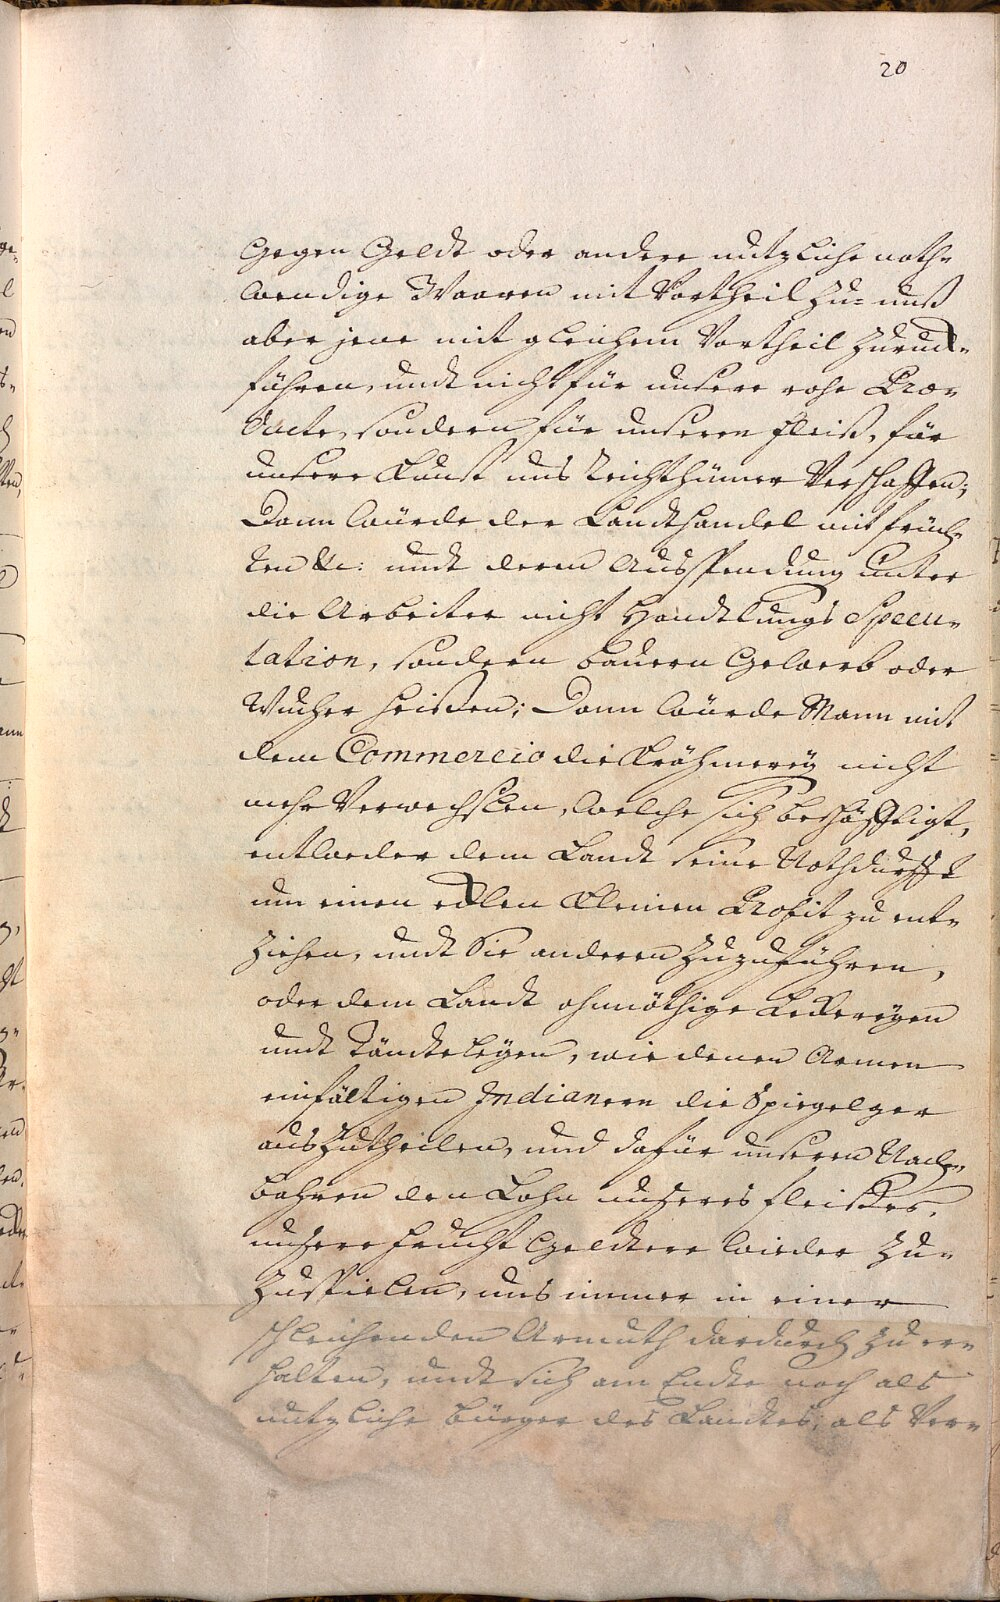 20
Gegen Geldt oder andere nutzliche noth-
wendige Waaren mit Vortheil zu- unß
aber jene mit gleichem Vortheil zuruck-
führen, undt nicht für unsere rohe Pro-
ducte, sondern für unseren Fleiß, für
unsere Kunst uns Reichthümer Verschaffen;
Dann würde der Landthandel mit früch-
ten &c: undt deren Ausspendung unter
die Arbeiter nicht Handtlungs Specu-
lation, sondern bauern Gewerb oder
Wucher heißen; Dann würde Mann mit
dem Commercio die Krähmerey nicht
mehr Verwechslen, welche sich beschäfftigt,
entweder dem Landt seine Nothdurfft
um einen edlen kleinen Profit zu ent-
ziehen, undt Sie anderen zuzuführen,
oder dem Landt ohnnöthige Leckereyen
undt Tändteleyen, wie denen Armen
einfältigen Indianern die Spiegel zer
auszutheilen, und dafür unseren Nach-
bahren den Lohn unseres fleißes,
unsere frucht Geldtere wieder zu-
zuspielen, uns immer in einer
schleichenden Armuth dardurch zu er-
halten, undt sich am Endte noch als
nutzliche bürger des Landtes, als Ver-